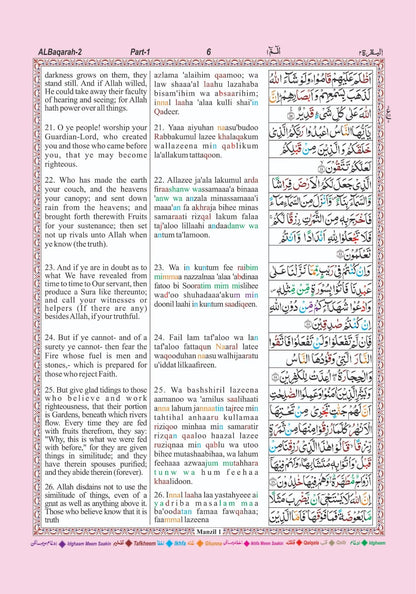 ALBaqarah-2 Part-1 6 الٓمّٓ ١ البقرة ٢
darkness grows on them, they
stand still. And if Allah willed,
He could take away their faculty
of hearing and seeing; for Allah
hath power over all things.
21. O ye people! worship your
Guardian-Lord, who created
you and those who came before
you, that ye may become
righteous.
22. Who has made the earth
your couch, and the heavens
your canopy; and sent down
rain from the heavens; and
brought forth therewith Fruits
for your sustenance; then set
not up rivals unto Allah when
ye know (the truth).
23. And if ye are in doubt as to
what We have revealed from
time to time to Our servant, then
produce a Sura like thereunto;
and call your witnesses or
helpers (If there are any)
besides Allah, if your truthful.
24. But if ye cannot- and of a
surety ye cannot- then fear the
Fire whose fuel is men and
stones,- which is prepared for
those who reject Faith.
25. But give glad tidings to those
who believe and work
righteousness, that their portion
is Gardens, beneath which rivers
flow. Every time they are fed
with fruits therefrom, they say:
"Why, this is what we were fed
with before," for they are given
things in similitude; and they
have therein spouses purified;
and they abide therein (forever).
26. Allah disdains not to use the
similitude of things, even of a
gnat as well as anything above it.
Those who believe know that it is
truth
azlama 'alaihim qaamoo; wa
law shaaa'al laahu lazahaba
bisam'ihim wa absaarihim;
innal laaha 'alaa kulli shai'in
Qadeer.
21. Yaaa aiyuhan naasu'budoo
Rabbakumul lazee khalaqakum
wallazeena min qablikum
la'allakum tattaqoon.
22. Allazee ja'ala lakumul arda
firaashanw wassamaaa'a binaaa
'anw wa anzala minassamaaa'i
maaa'an fa akhraja bihee minas
samaraati rizqal lakum falaa
taj'aloo lillaahi andaadanw wa
antum ta'lamoon.
23. Wa in kuntum fee raibim
mimmaa nazzalnaa 'alaa 'abdinaa
fatoo bi Sooratim mim mislihee
wad'oo shuhadaaa'akum min
doonil laahi in kuntum saadiqeen.
24. Fail lam taf'aloo wa lan
taf'aloo fattaqun Naaral latee
waqooduhan naasu walhijaaratu
u'iddat lilkaafireen.
25. Wa bashshiril lazeena
aamanoo wa 'amilus saalihaati
anna lahum jannaatin tajree min
tahtihal anhaaru kullamaa
riziqoo minhaa min samaratir
rizqan qaaloo haazal lazee
ruziqnaa min qablu wa utoo
bihee mutashaabihaa, wa lahum
feehaaa azwaajum mutahhara
tunw wa hum feehaa
khaalidoon.
26. Innal laaha laa yastahyeee ai
yadriba masalam maa
ba'oodatan famaa fawqahaa;
faammal lazeena
أَظْلَمَ عَلَيْهِمْ قَامُوا وَلَوْ شَاءَ اللَّهُ
لَذَهَبَ بِسَمْعِهِمْ وَأَبْصَارِهِمْ إِنَّ
اللَّهَ عَلَى كُلِّ شَيْءٍ قَدِيرٌ
يٰۤاَيُّهَا النَّاسُ اعْبُدُوا رَبَّكُمُ الَّذِي
خَلَقَكُمْ وَالَّذِينَ مِنْ قَبْلِكُمْ
لَعَلَّكُمْ تَتَّقُونَ
الَّذِي جَعَلَ لَكُمُ الْأَرْضَ فِرَاشًا
وَالسَّمَاءَ بِنَاءً وَأَنْزَلَ مِنَ السَّمَاءِ مَاءً
فَأَخْرَجَ بِهِ مِنَ الثَّمَرٰتِ رِزْقًا لَكُمْ
فَلَا تَجْعَلُوا لِلَّهِ أَنْدَادًا وَأَنْتُمْ
تَعْلَمُونَ
وَإِنْ كُنْتُمْ فِي رَيْبٍ مِمَّا نَزَّلْنَا عَلَى
عَبْدِنَا فَأْتُوا بِسُورَةٍ مِنْ مِثْلِهِ
وَادْعُوا شُهَدَاءَكُمْ مِنْ دُونِ اللَّهِ
إِنْ كُنْتُمْ صٰدِقِينَ
فَإِنْ لَمْ تَفْعَلُوا وَلَنْ تَفْعَلُوا فَاتَّقُوا
النَّارَ الَّتِي وَقُودُهَا النَّاسُ
وَالْحِجَارَةُ أُعِدَّتْ لِلْكٰفِرِينَ
وَبَشِّرِ الَّذِينَ اٰمَنُوا وَعَمِلُوا الصّٰلِحٰتِ
أَنَّ لَهُمْ جَنّٰتٍ تَجْرِي مِنْ تَحْتِهَا
الْأَنْهٰرُ كُلَّمَا رُزِقُوا مِنْهَا مِنْ ثَمَرَةٍ
رِزْقًا قَالُوا هٰذَا الَّذِي رُزِقْنَا مِنْ
قَبْلُ وَأُتُوا بِهِ مُتَشَابِهًا وَلَهُمْ فِيهَا
أَزْوَاجٌ مُطَهَّرَةٌ وَهُمْ فِيهَا خٰلِدُونَ
إِنَّ اللَّهَ لَا يَسْتَحْيٖ أَنْ يَضْرِبَ مَثَلًا
مَا بَعُوضَةً فَمَا فَوْقَهَا فَأَمَّا الَّذِينَ
Manzil 1
Idghaam Meem Saakin Talkheem Ikhfa Ghunna Ikhfa Meem Saakin Qalqala Qalb Idgheem